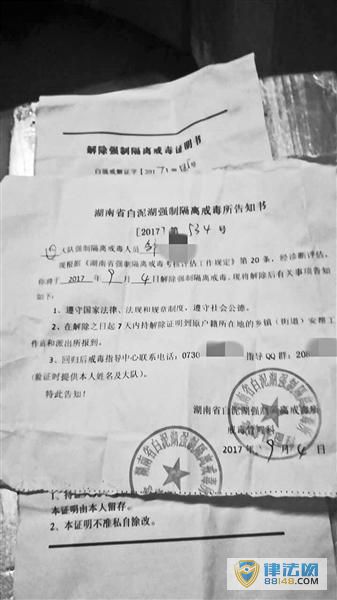 解除强制隔离戒毒证明书
湖南省白泥湖强制隔离戒毒所告知书
[2017]第534号
大队强制隔离戒毒人员
现根据《湖南省强制隔离戒毒考核评估工作规定》第20条,经诊断评估,
你将于2017年9月4日解除强制隔离戒毒。现将解除后有关事项告知
如下:
1、遵守国家法律、法规和规章制度,遵守社会公德。
2、在解除之日起7天内持解除证明到原户籍所在地的乡镇(街道)安翔工
作前和派出所报到。
3、回归后戒毒指导中心联系电话:0730 指导QQ群:208
(验证时提供本人姓名及大队)。
特此告知!
湖南省白泥湖强制隔离戒毒所
戒毒管理科
2017年9月4日
本证明由本人留存。
2、本证明不准私自涂改。
律法网
88148.com